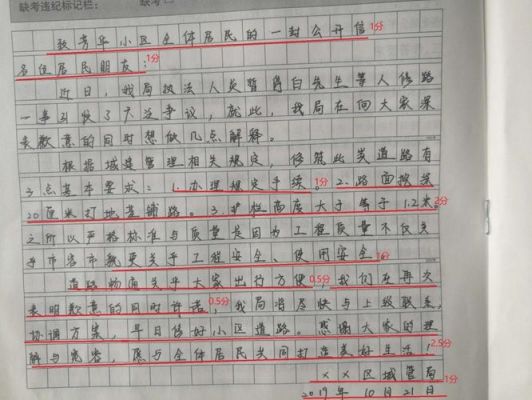 缺考违纪标记栏: 缺考
致芳华小区全体居民的一封公开信 1分
各位居民朋友: 1分
近日,我局执法人员暂停白先生等人修路
一事引发了广泛争议,就此,我局在向大家深
表歉意的同时想做几点解释。
根据城建管理相关规定,修筑此类道路有
3点基本要求:1.办理规定手续。1分 2.路面挖送
20厘米打地基铺路。3.护栏高度大于等于1.2米。2分
之所以严格标准与质量是因为工程质量不仅关
乎市容市貌更关乎工程安全、使用安全 1分
道路畅通关乎大家出行方便 0.5分,我们在再次
表明歉意的同时许诺 0.5分,我局将尽快与上级联系,
协调方案,早日修好小区道路。感谢大家的理
解与宽容,愿与全体居民共同打造美好生活! 2.5分
××区城管局 1分
2019年10月21日